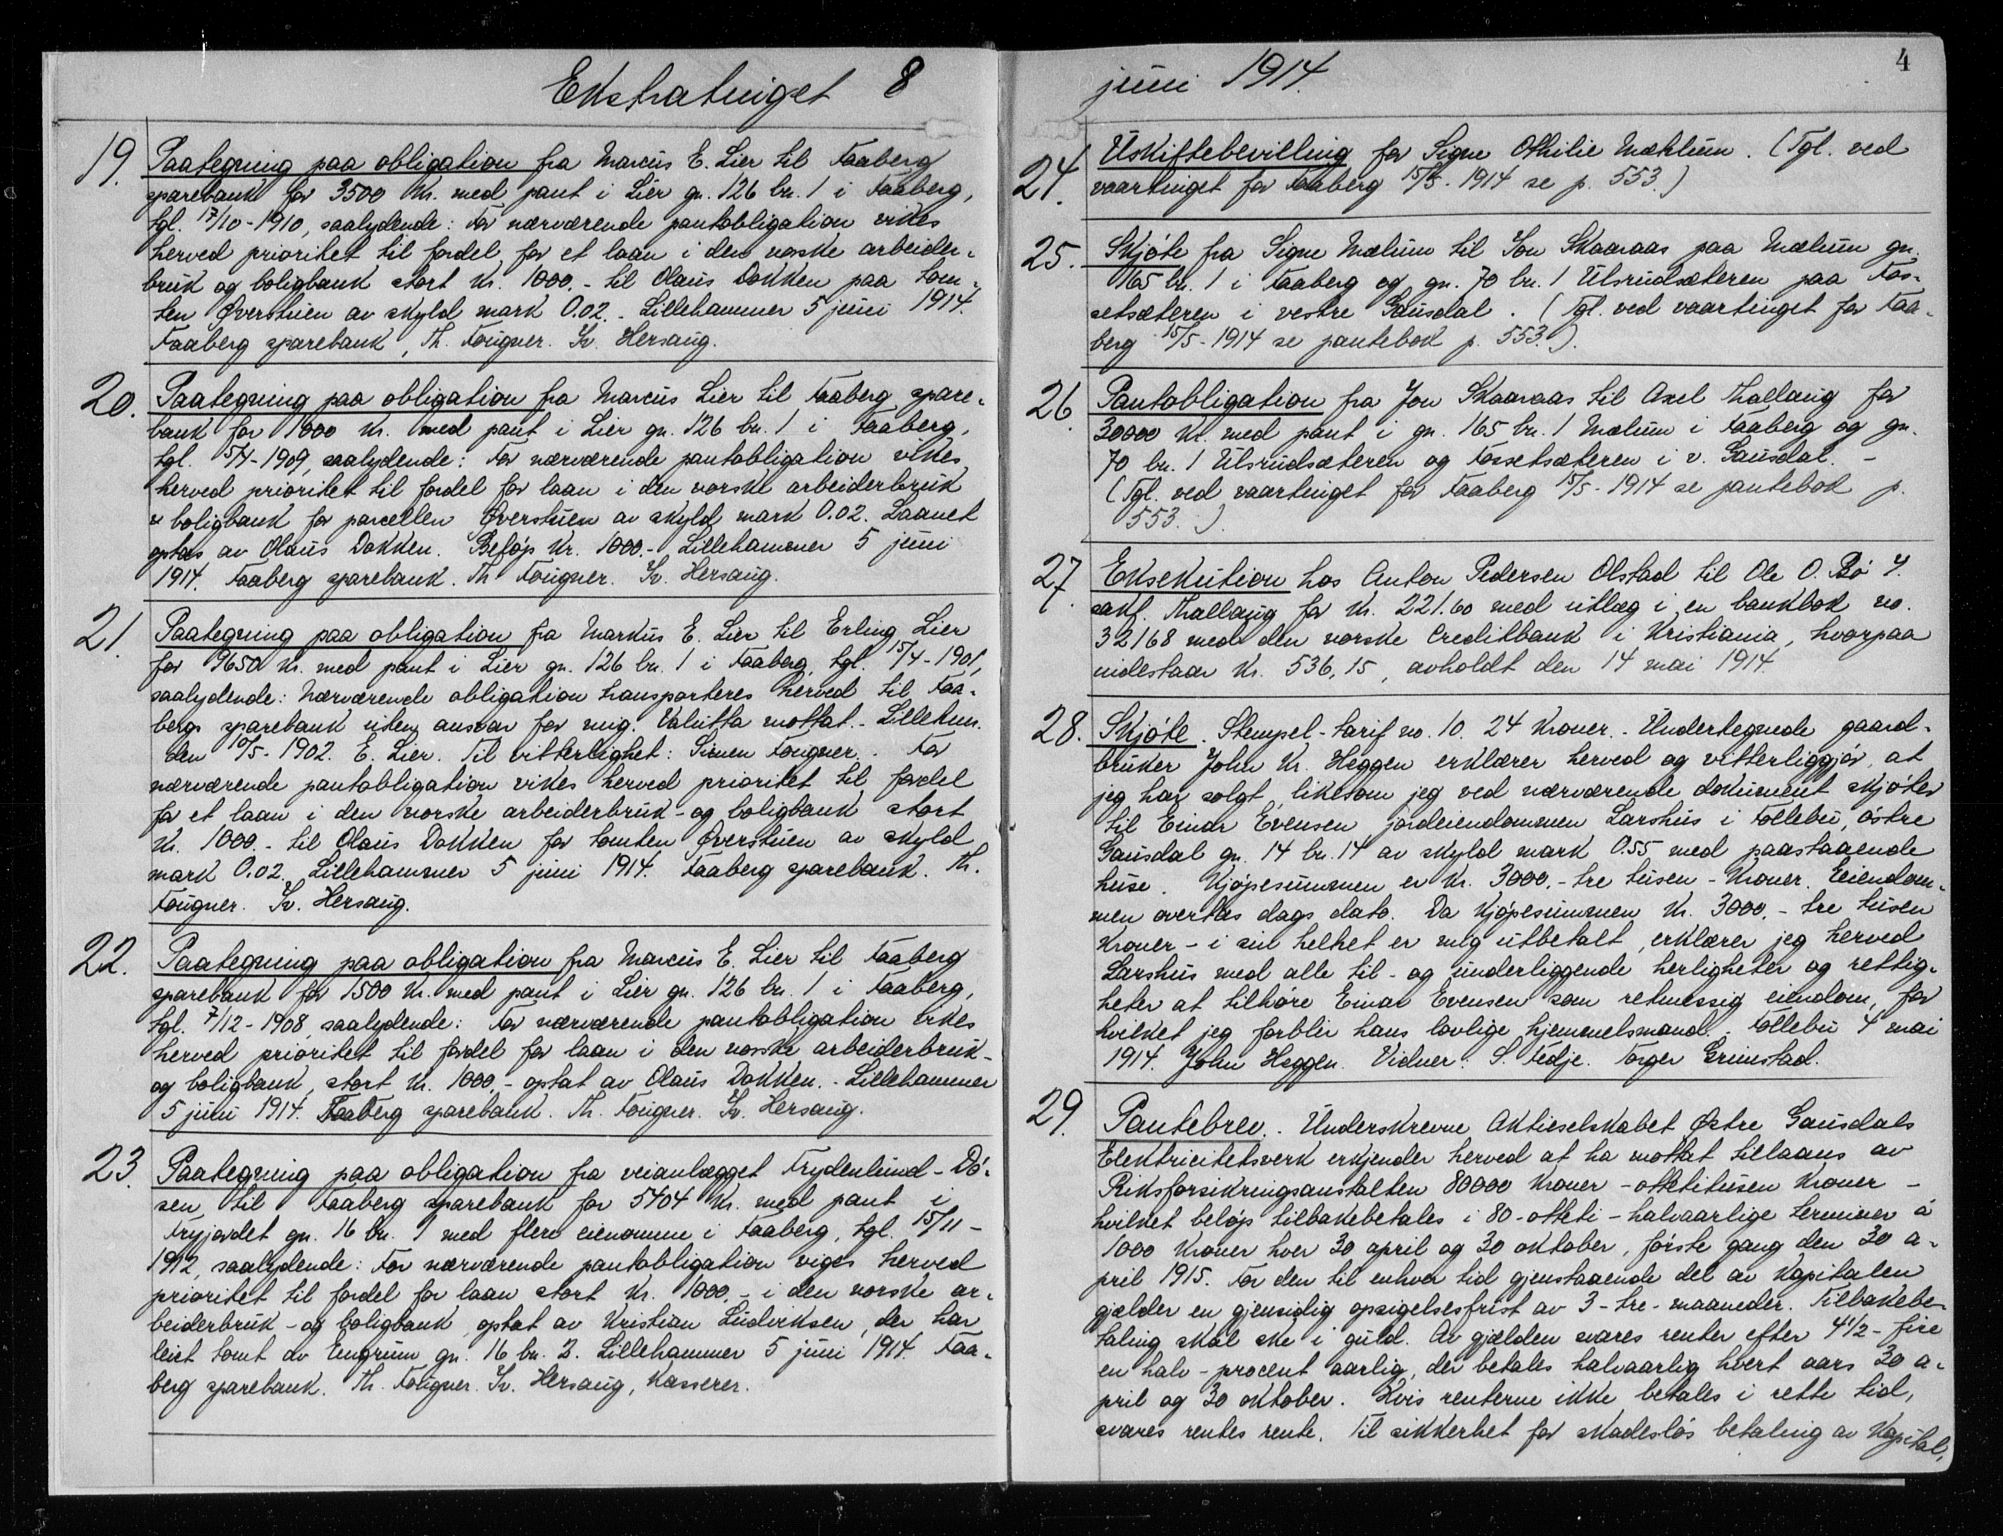 Ekstratinget 8
19. Paategning paa obligation fra Marcus E. Lier til Faaberg
sparebank for 3500 Kr. med pant i Lier gn. 126 bn. 1 i Faaberg,
tgl. 17/10-1910, saalydende: For nærværende pantobligation vikes
herved prioritet til fordel for et laan i den norske arbeider-
bruk og boligbank stort Kr. 1000.- til Olaus Dokken paa tom-
ten Øverstuen av skyld mark 0.02. Lillehammer 5 juni 1914.
Faaberg sparebank, Th. Fougner. Sv. Hersaug.
20. Paategning paa obligation fra Marcus Lier til Faaberg spare-
bank for 1000 Kr. med pant i Lier gn. 126 bn. 1 i Faaberg,
tgl. 15/4-1909, saalydende: For nærværende pantobligation vikes
herved prioritet til fordel for laan i den norske arbeiderbruk
& boligbank for parcellen Øverstuen av skyld mark 0.02. Laanet
optas av Olaus Dokken. Beløp Kr. 1000.- Lillehammer 5 juni
1914. Faaberg sparebank. Th Fougner. Sv. Hersaug.
21. Paategning paa obligation fra Markus E. Lier til Erling Lier
for 9650 Kr. med pant i Lier gn. 126 bn. 1 i Faaberg, tgl. 15/4-1901,
saalydende: Nærværende obligation transporteres herved til Faa-
bergs sparebank uten ansvar for mig. Valutta mottat. Lillehm.
den 10/5-1902. E. Lier. Til vitterlighet: Simen Fougner. For
nærværende pantobligation vikes herved prioritet til fordel
for et laan i den norske arbeiderbruk- og boligbank stort
Kr. 1000.- til Olaus Dokken for tomten Øverstuen av skyld
mark 0.02. Lillehammer 5 juni 1914. Faaberg sparebank. Th.
Fougner. Sv. Hersaug.
22. Paategning paa obligation fra Marcus E. Lier til Faaberg
sparebank for 1500 Kr. med pant i Lier gn. 126 bn. 1 i Faaberg,
tgl. 7/12-1908, saalydende: For nærværende pantobligation vikes
herved prioritet til fordel for laan i den norske arbeiderbruk-
og boligbank, stort Kr. 1000.- optat av Olaus Dokken. - Lillehammer
5 juni 1914. Faaberg sparebank. Th. Fougner. Sv. Hersaug.
23. Paategning paa obligation fra veianlægget Frydenlund - Dø-
sen til Faaberg sparebank for 5404 Kr. med pant i
Fryjordet gn. 16 bn. 1 med flere eienomme i Faaberg, tgl. 15/11-
1912, saalydende: For nærværende pantobligation viges herved
prioritet til fordel for laan stort Kr. 1000.- i den norske ar-
beiderbruk- og boligbank, optat av Kristian Ludviksen, der har
leiet tomt av Engrum gn. 16 bn. 2. Lillehammer 5 juni 1914. Faa-
berg sparebank. Th. Fougner. Sv. Hersaug, Kasserer.
juni 1914.
4
24. Uskiftebevilling for Signe Othilie Mæhlum. (Tgl. ved
vaartinget for Faaberg 15/5-1914 se p. 553.)
25. Skjøte fra Signe Mælum til Jon Skaaraas paa Mælum gn.
165 bn. 1 i Faaberg og gn. 70 bn. 1 Ulsrudsæteren paa Fos-
setsæteren i vestre Gausdal. (Tgl. ved vaartinget for Faa-
berg 15/5-1914 se pantebok p. 553.).
26. Pantobligation fra Jon Skaaraas til Axel Thallaug for
30000 Kr. med pant i gn. 165 bn. 1 Mælum i Faaberg og gn.
70 bn. 1 Ulsrudsæteren og Fossetsæteren i v. Gausdal. -
(Tgl. ved vaartinget for Faaberg 15/5-1914 se pantebok p.
553.).
27. Eksekution hos Anton Pedersen Olstad til Ole O. Bø v.
sakf. Thallaug for Kr. 221.60 med utlæg i en bankbok no.
32168 med den norske Creditbank i Kristiania, hvorpaa
indestaar Kr. 536,15, avholdt den 14 mai 1914.
28. Skjøte. Stempel-tarif no. 10. 24 Kroner. - Undertegnede gaard-
bruker John Kr. Heggen erklærer herved og vitterliggjør, at
jeg har solgt, likesom jeg ved nærværende dokument skjøter
til Einar Evensen jordeiendommen Larshus i Follebu, østre
Gausdal gn. 14 bn. 14 av skyld mark 0.55 med paastaaende
huse. Kjøpesummen er Kr. 3000.- tre tusen - Kroner. Eiendom-
men overtas dags dato. Da Kjøpesummen Kr. 3000.- tre tusen
Kroner - i sin helhet er mig utbetalt, erklærer jeg herved
Larshus med alle til- og underliggende herligheter og rettig-
heter at tilhøre Einar Evensen som retmessig eiendom, for
hvilket jeg forblir hans lovlige hjemmelsmand. Follebu 4 mai
1914. John Heggen. Vidner: S. Fedje. Torger Grimstad.
29. Pantebrev. Underskrevne Aktieselskabet Østre Gausdals
Elektricitetsverk erkjender herved at ha mottat tillaans av
Riksforsikringsanstalten 80000 Kroner - ottetitusen Kroner -
hvilket beløp tilbakebetales i 80 - otteti - halvaarlige terminer à
1000 Kroner hver 30 april og 30 oktober, første gang den 30 a-
pril 1915. For den til enhver tid gjenstaaende del av Kapitalen
gjælder en gjensidig opsigelsesfrist av 3 - tre - maaneder. Tilbakebe-
taling skal ske i guld. Av gjælden svares renter efter 4 1/2 - fire
en halv - procent aarlig, der betales halvaarlig hvert aars 30 a-
pril og 30 oktober. Hvis renterne ikke betales i rette tid,
svares rentes rente. Til sikkerhet for skadesløs betaling av Kapital,